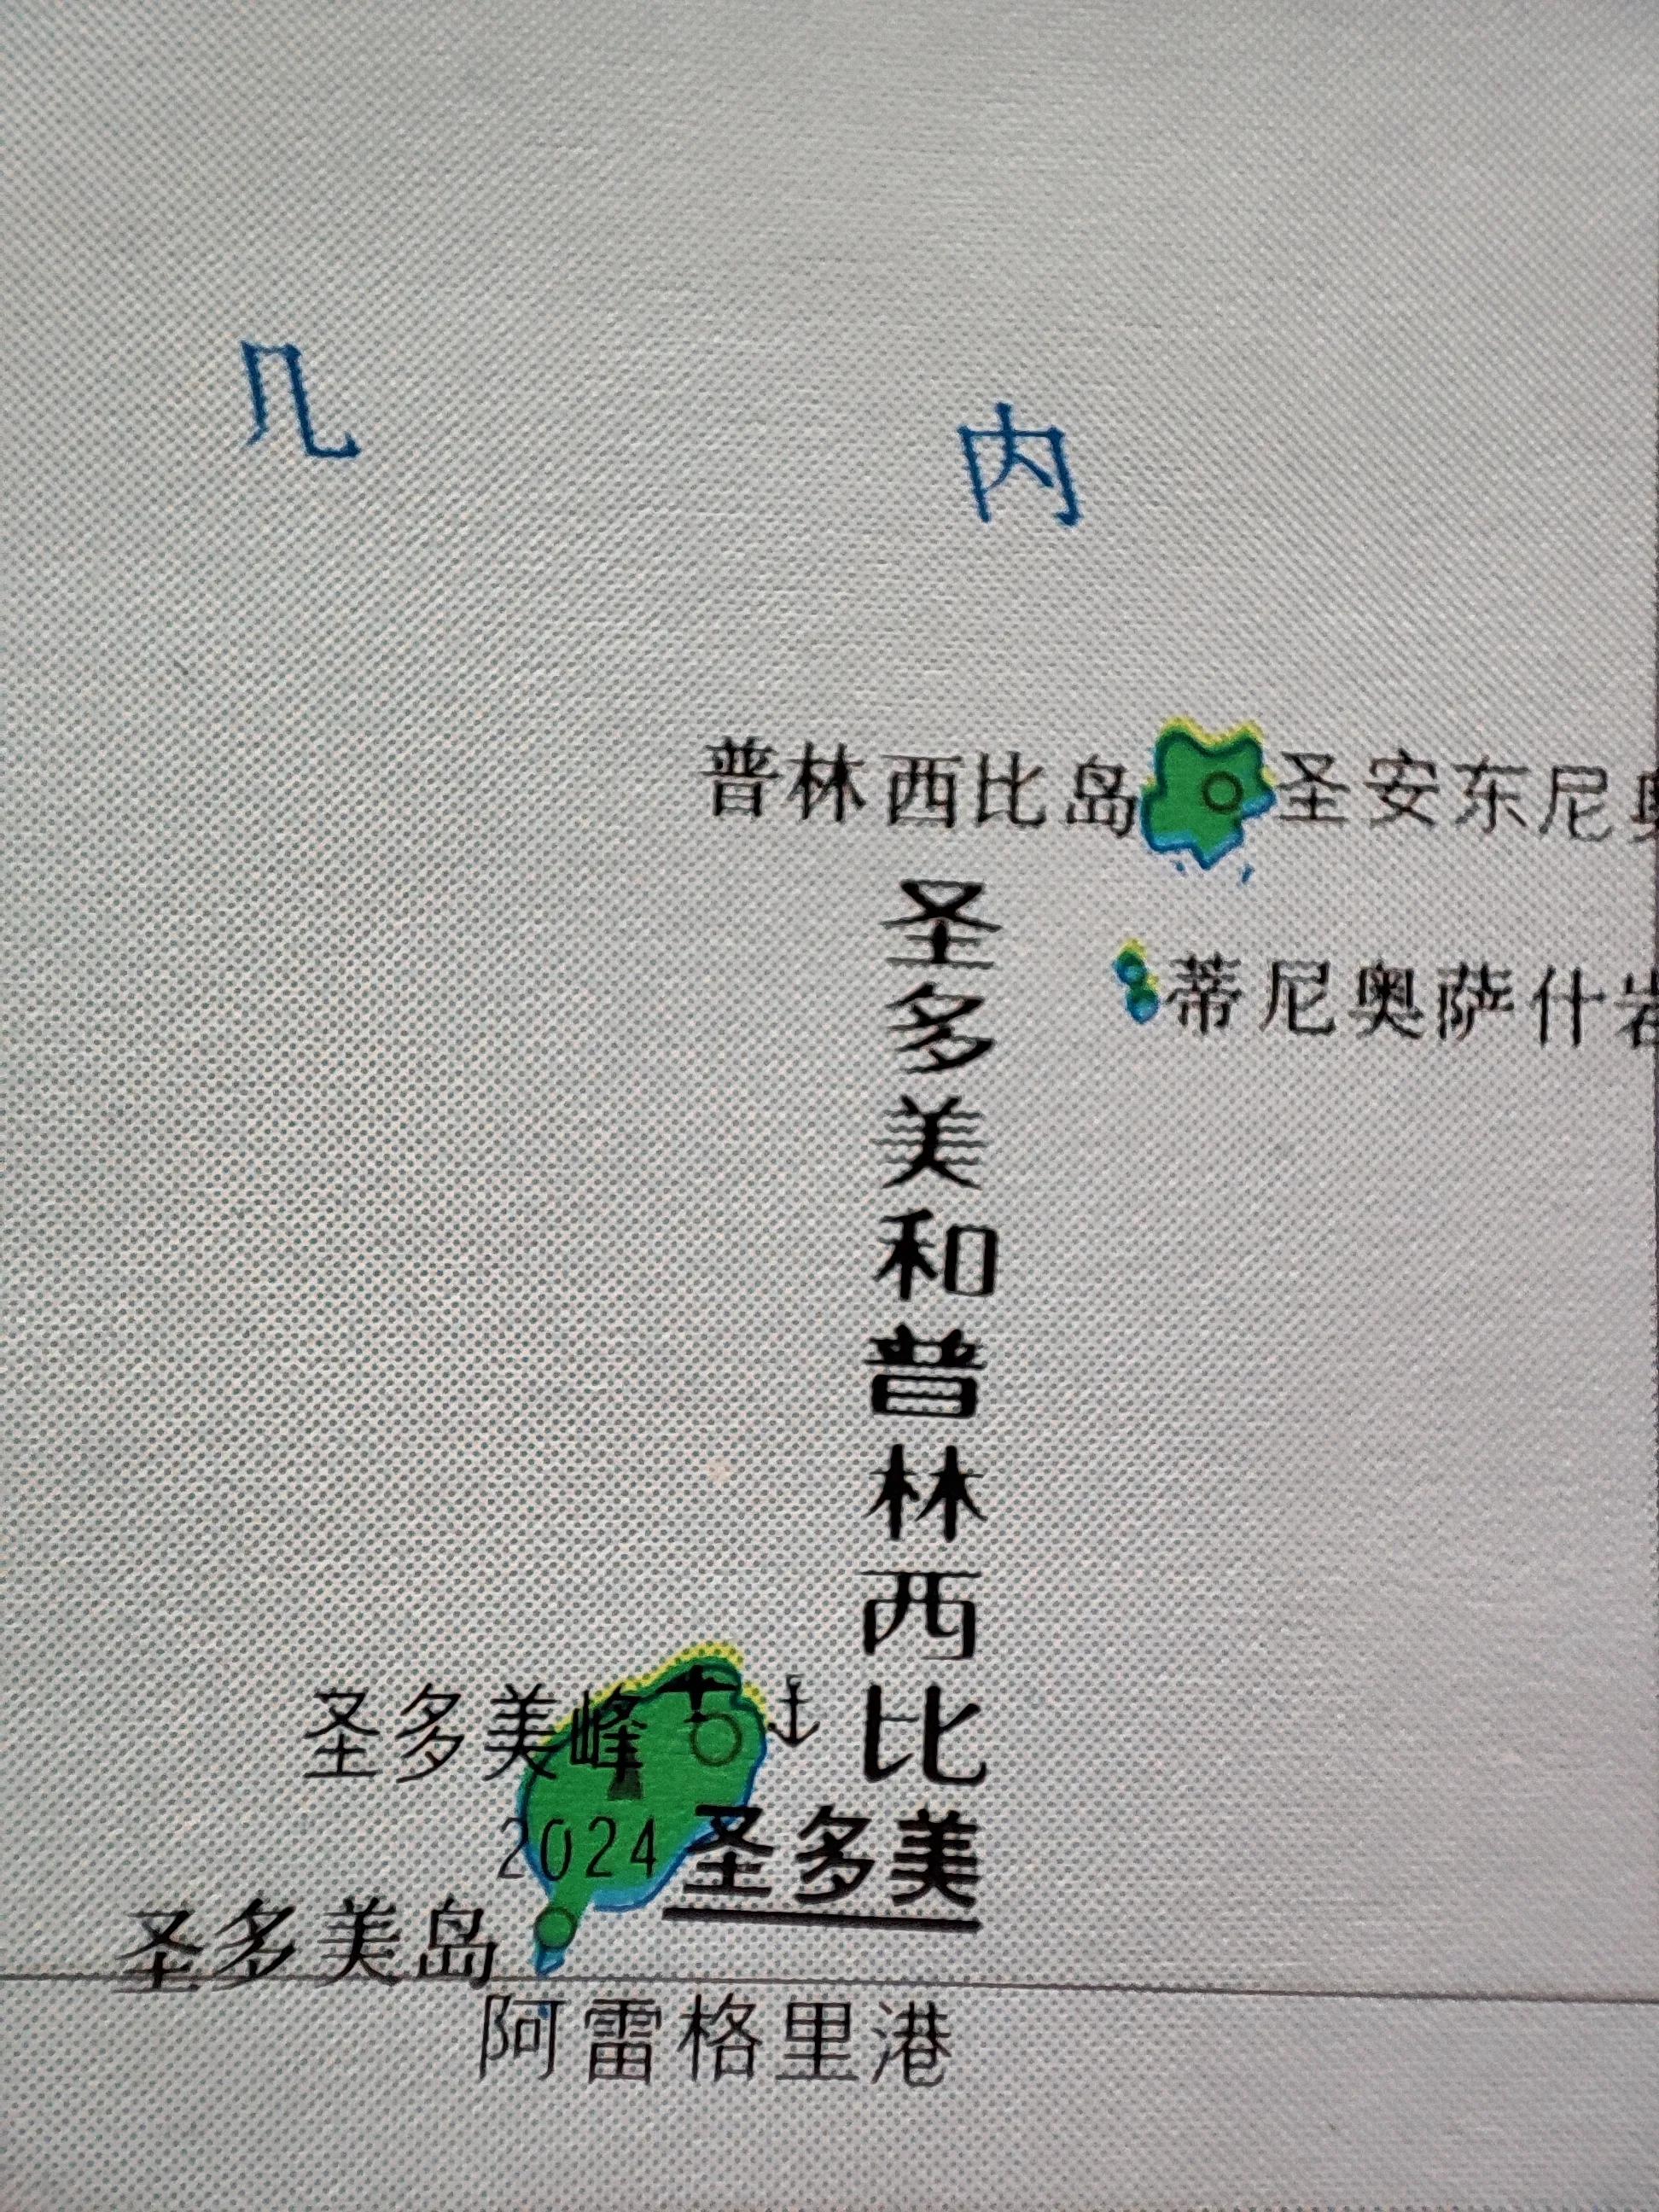 几 内
普林西比岛 圣安东尼奥
蒂尼奥萨什岩
圣多美和普林西比
圣多美峰
2024
圣多美
圣多美岛
阿雷格里港